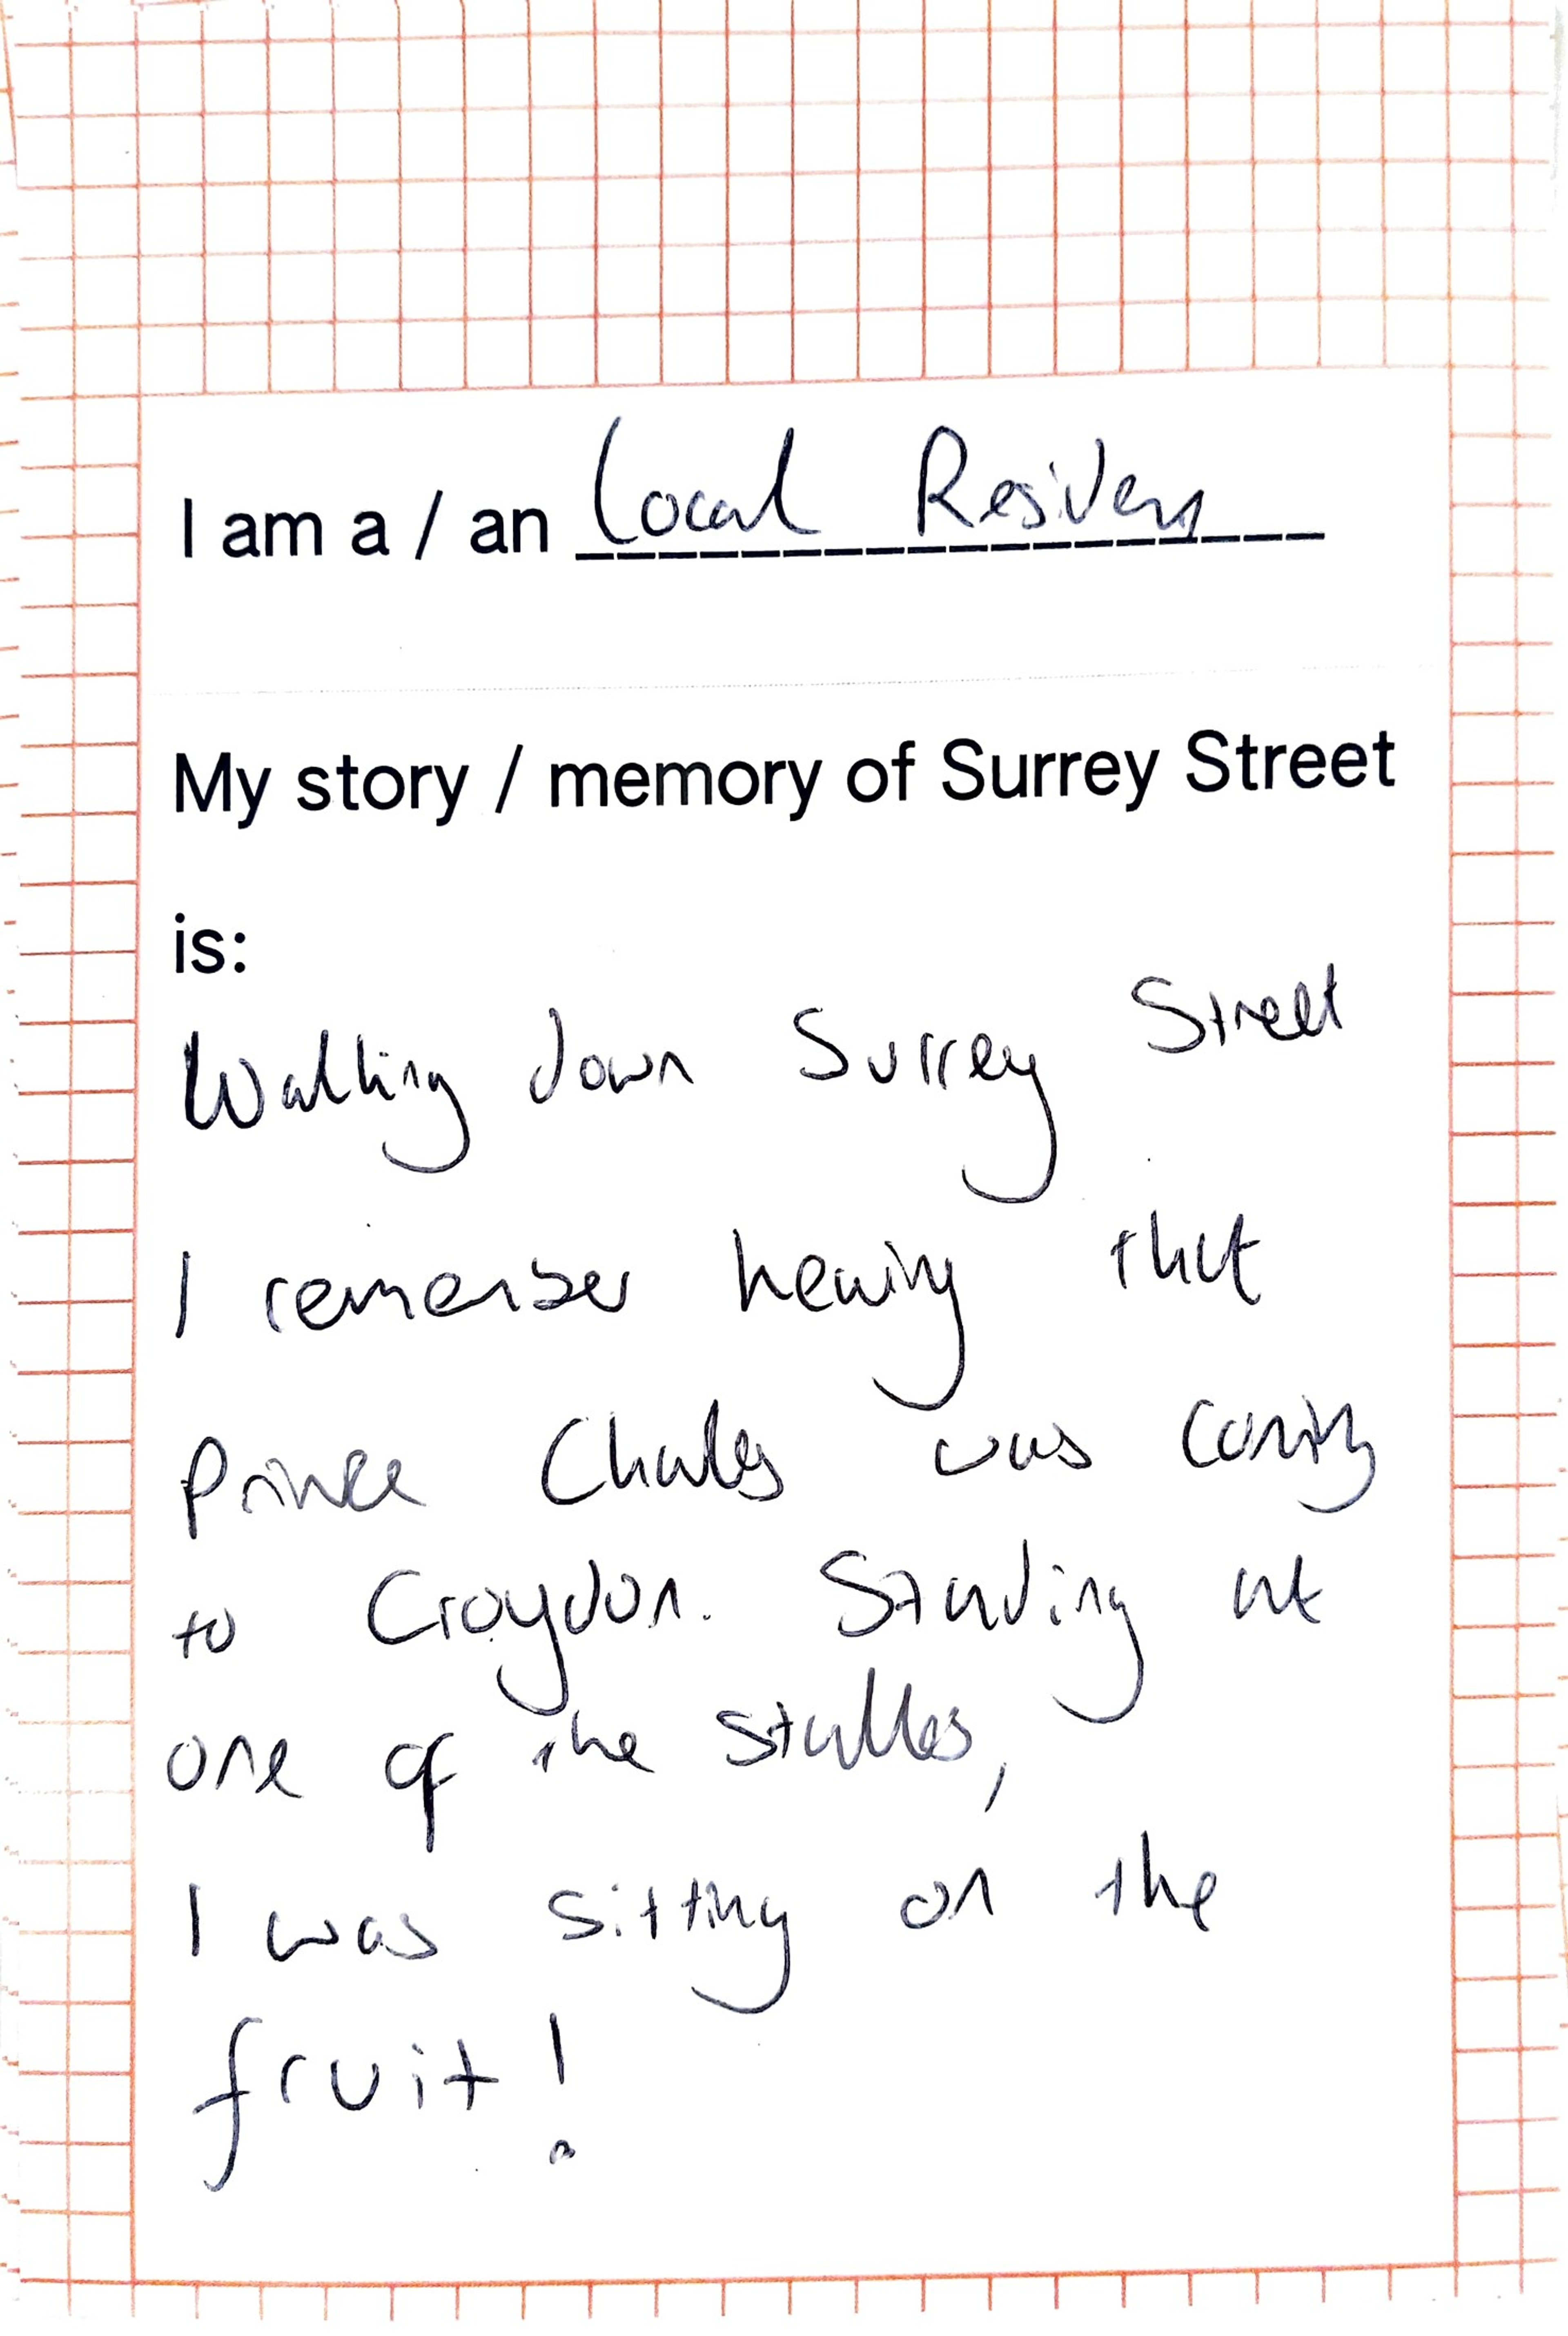 I am a / an Local Resident
My story / memory of Surrey Street
is:
Walking down Surrey Street
I remember hearing that
Prince Charles was coming
to Croydon. Standing at
one of the stalles,
I was sitting on the
fruit!